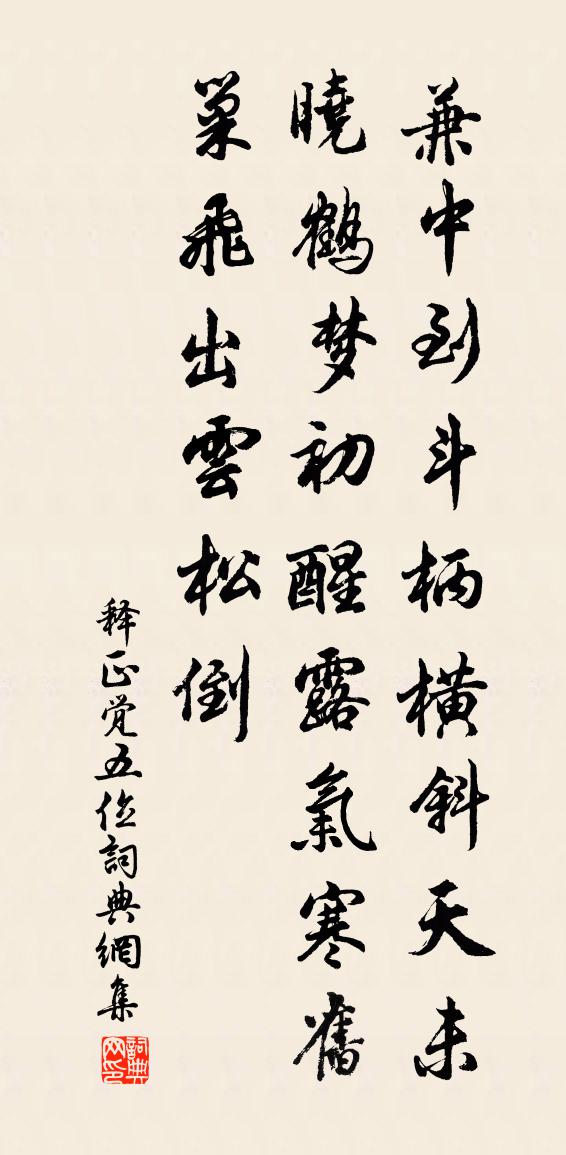 兼中到斗柄橫斜天未
曉鶴梦初醒露氣寒舊
巢飛出雲松倒
释正觉五位詞典網集
詞典网印